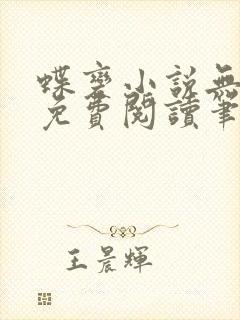 蝶變小說無
免費閱讀筆
王晨輝